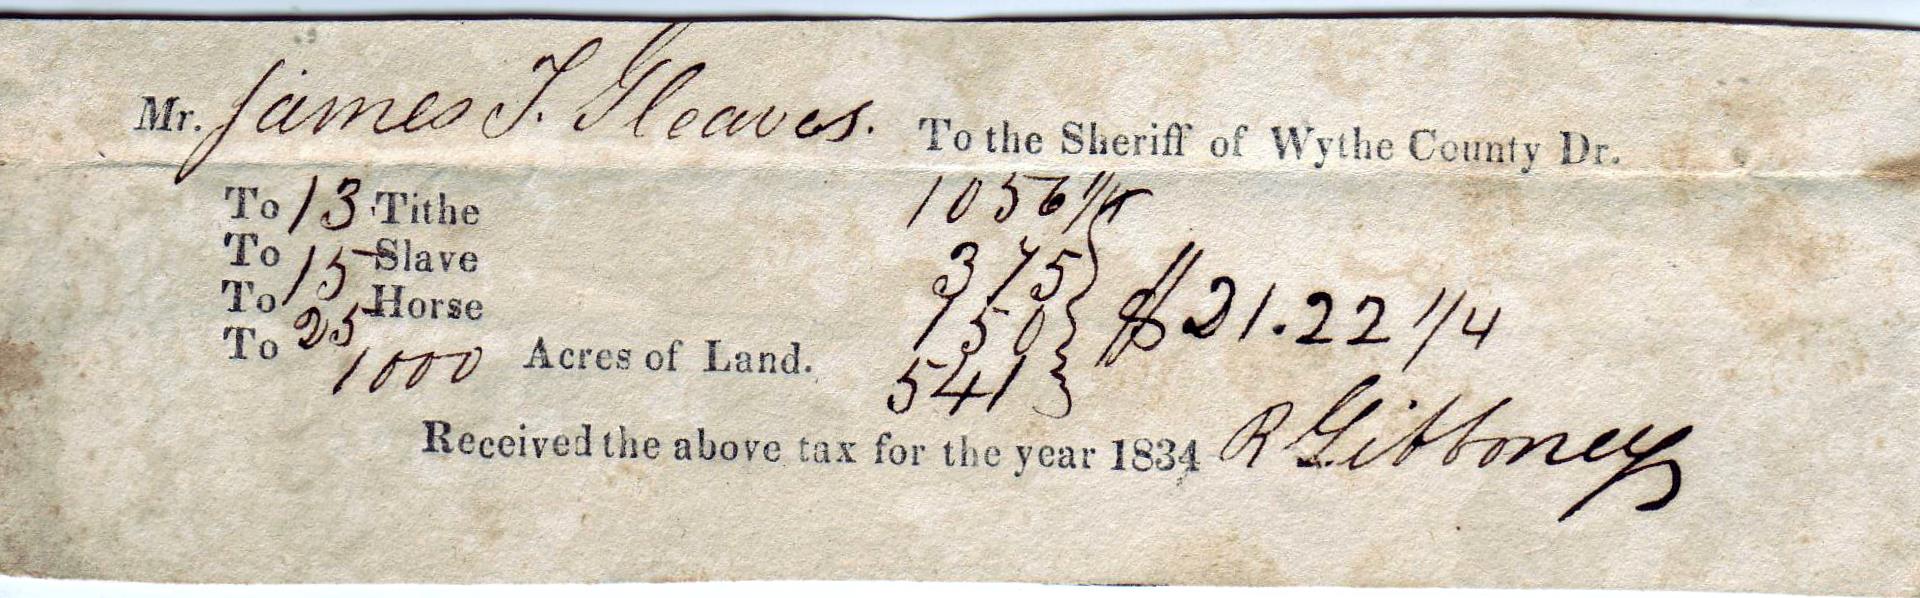 Mr. James T. Gleaves. To the Sheriff of Wythe County Dr.
To 13 Tithe 1056 1/4
To 15 Slave 375
To 25 Horse 150
To 1000 Acres of Land. 541
$21.22 1/4
Received the above tax for the year 1834 R Gibboney